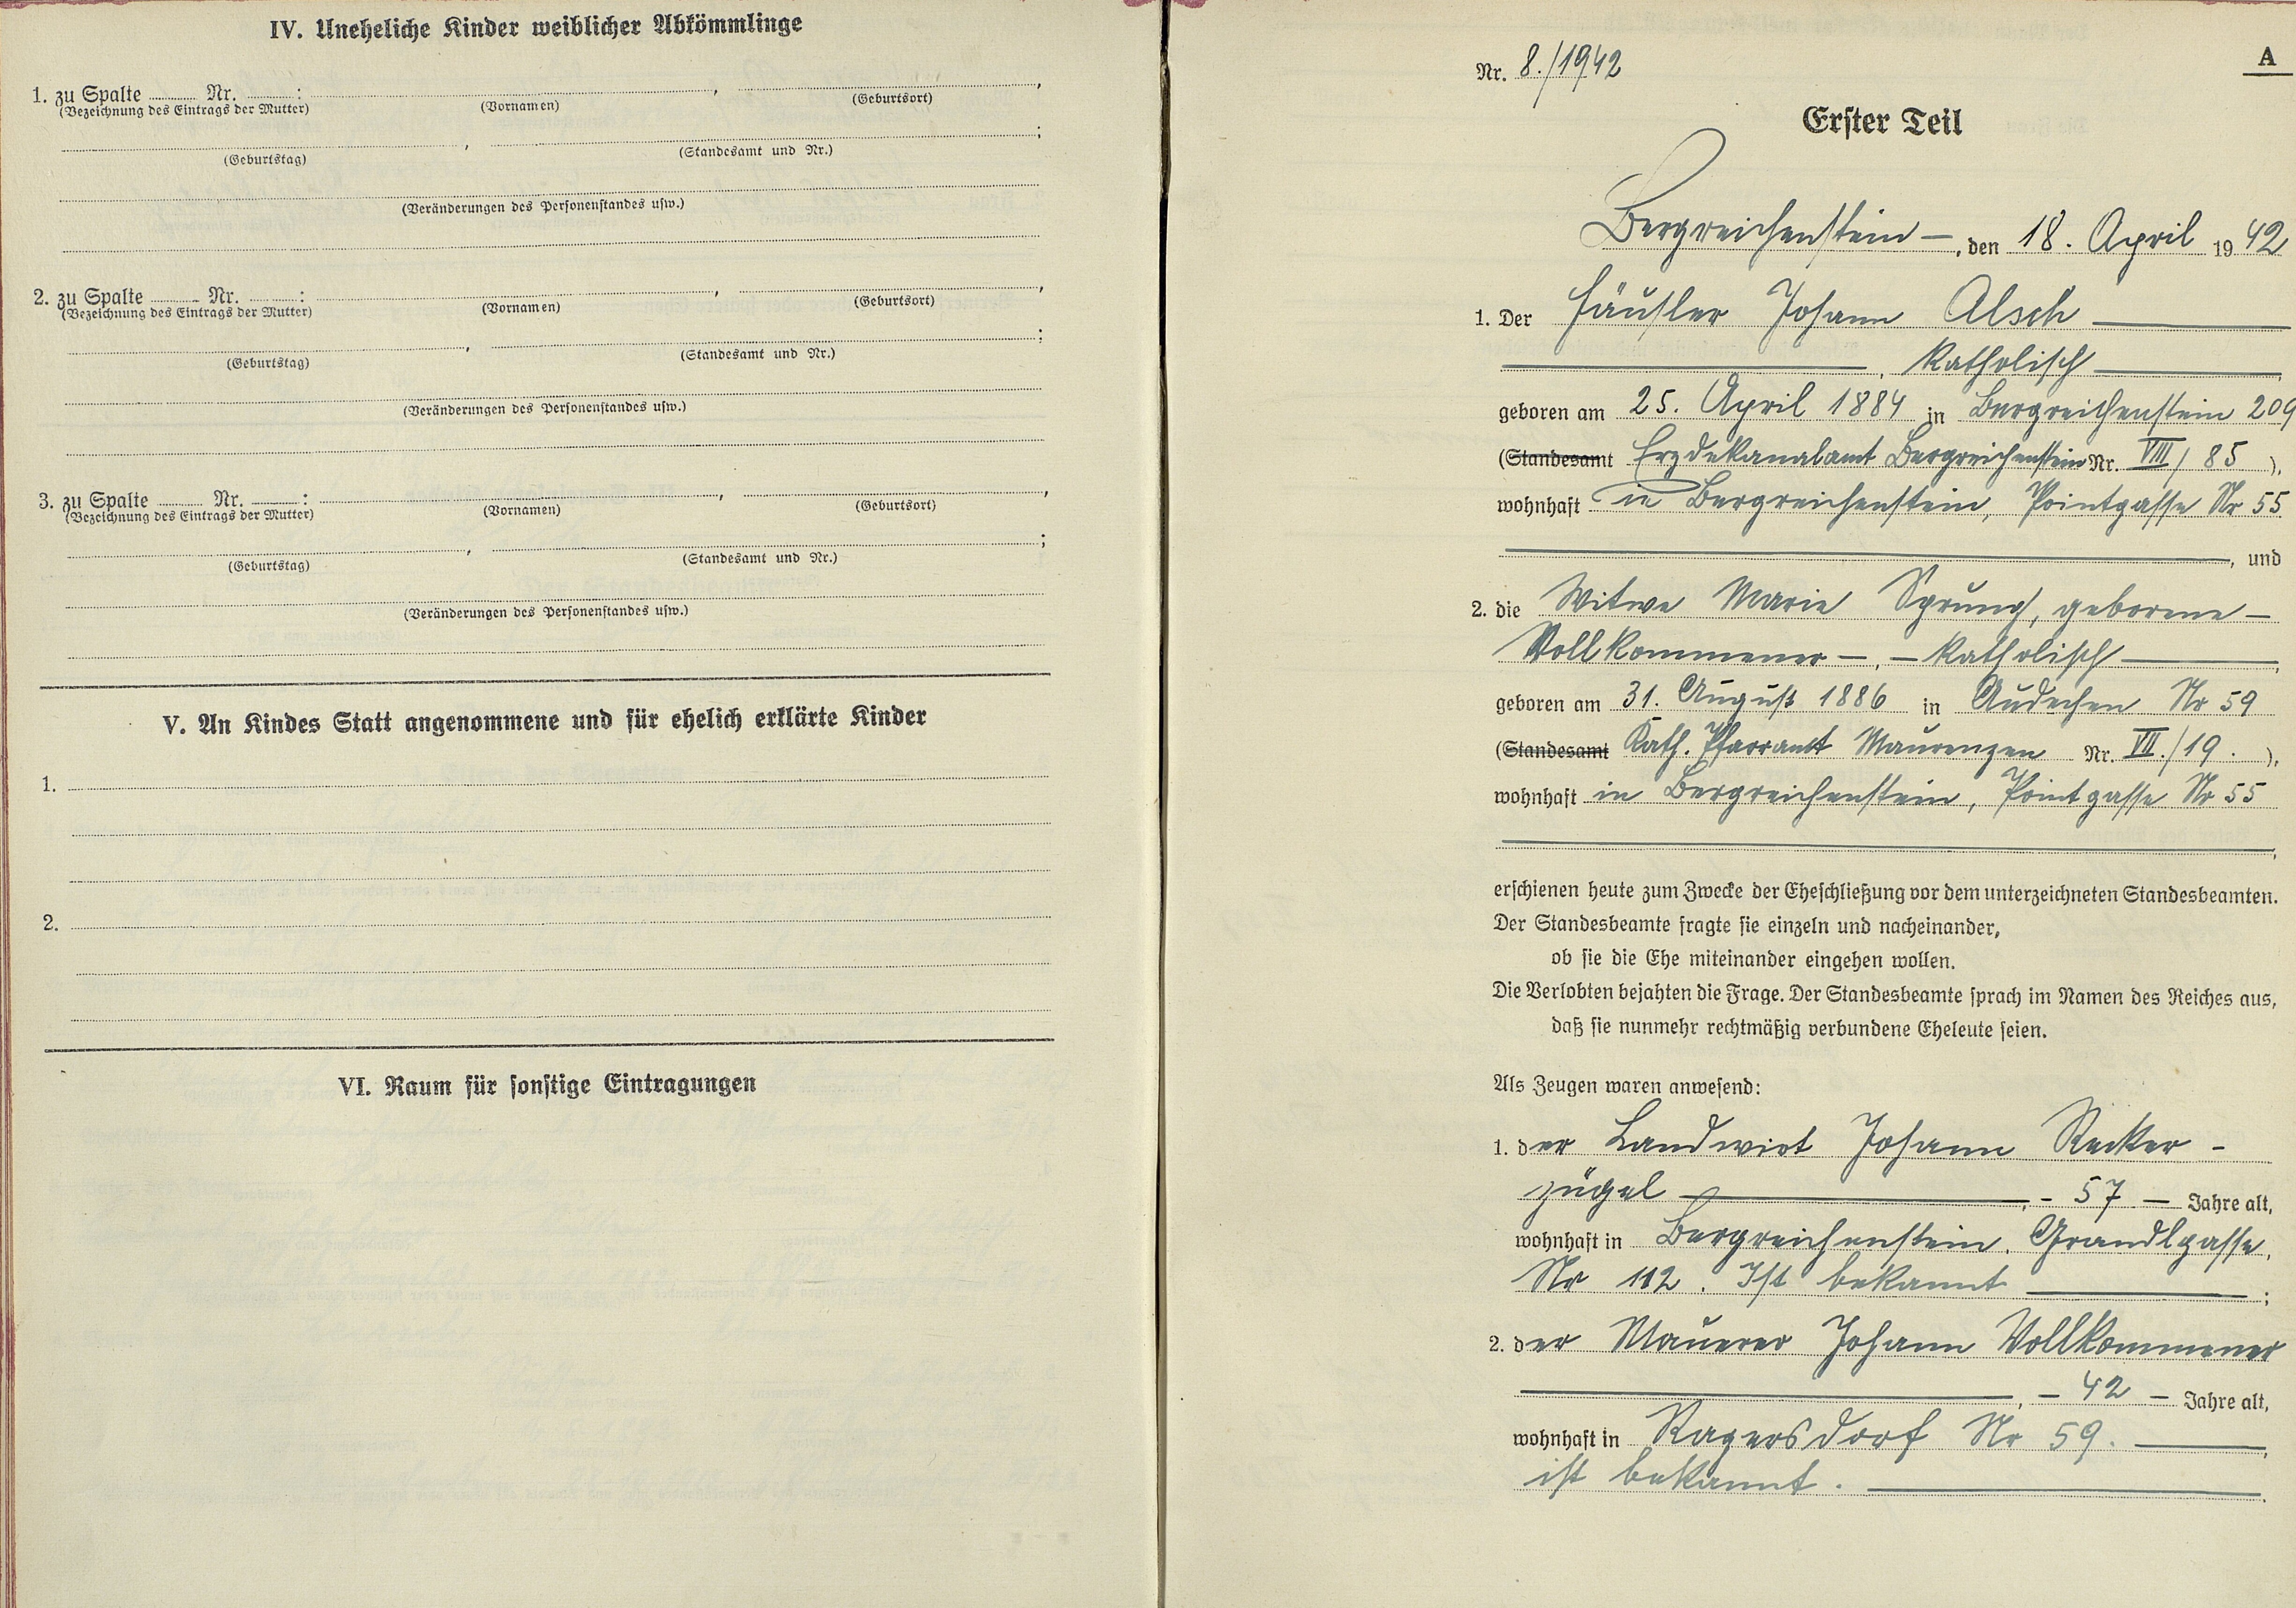 IV. Uneheliche Kinder weiblicher Abkömmlinge
1. zu Spalte ........ Nr. ........ :
(Bezeichnung des Eintrags der Mutter) (Vornamen) (Geburtsort)
(Geburtstag) (Standesamt und Nr.)
(Veränderungen des Personenstandes usw.)
2. zu Spalte ........ Nr. ........ :
(Bezeichnung des Eintrags der Mutter) (Vornamen) (Geburtsort)
(Geburtstag) (Standesamt und Nr.)
(Veränderungen des Personenstandes usw.)
3. zu Spalte ........ Nr. ........ :
(Bezeichnung des Eintrags der Mutter) (Vornamen) (Geburtsort)
(Geburtstag) (Standesamt und Nr.)
(Veränderungen des Personenstandes usw.)
V. An Kindes Statt angenommene und für ehelich erklärte Kinder
1.
2.
VI. Raum für sonstige Eintragungen
A
Nr. 8./1942
Erster Teil
Bergreichenstein —, den 18. April 1942
1. Der Häusler Johann Alsch
, katholisch
geboren am 25. April 1884 in Bergreichenstein 209
(Standesamt Erzdekanalamt Bergreichenstein Nr. VIII/85 ),
wohnhaft in Bergreichenstein, Pointgasse Nr 55
, und
2. die Witwe Marie Sprung, geborene —
Vollkommener —, — katholisch
geboren am 31. August 1886 in Audechen Nr 59
(Standesamt Kath. Pfarramt Maurenzen Nr. VII./19. ),
wohnhaft in Bergreichenstein, Pointgasse Nr 55
erschienen heute zum Zwecke der Eheschließung vor dem unterzeichneten Standesbeamten.
Der Standesbeamte fragte sie einzeln und nacheinander,
ob sie die Ehe miteinander eingehen wollen.
Die Verlobten bejahten die Frage. Der Standesbeamte sprach im Namen des Reiches aus,
daß sie nunmehr rechtmäßig verbundene Eheleute seien.
Als Zeugen waren anwesend:
1. der Landwirt Johann Recker -
zügel —, - 57 — Jahre alt,
wohnhaft in Bergreichenstein, Grandlgasse,
Nr 112. Ist bekannt ;
2. der Mauerer Johann Vollkommener
, — 42 — Jahre alt,
wohnhaft in Ragersdorf Nr 59.
ist bekannt.